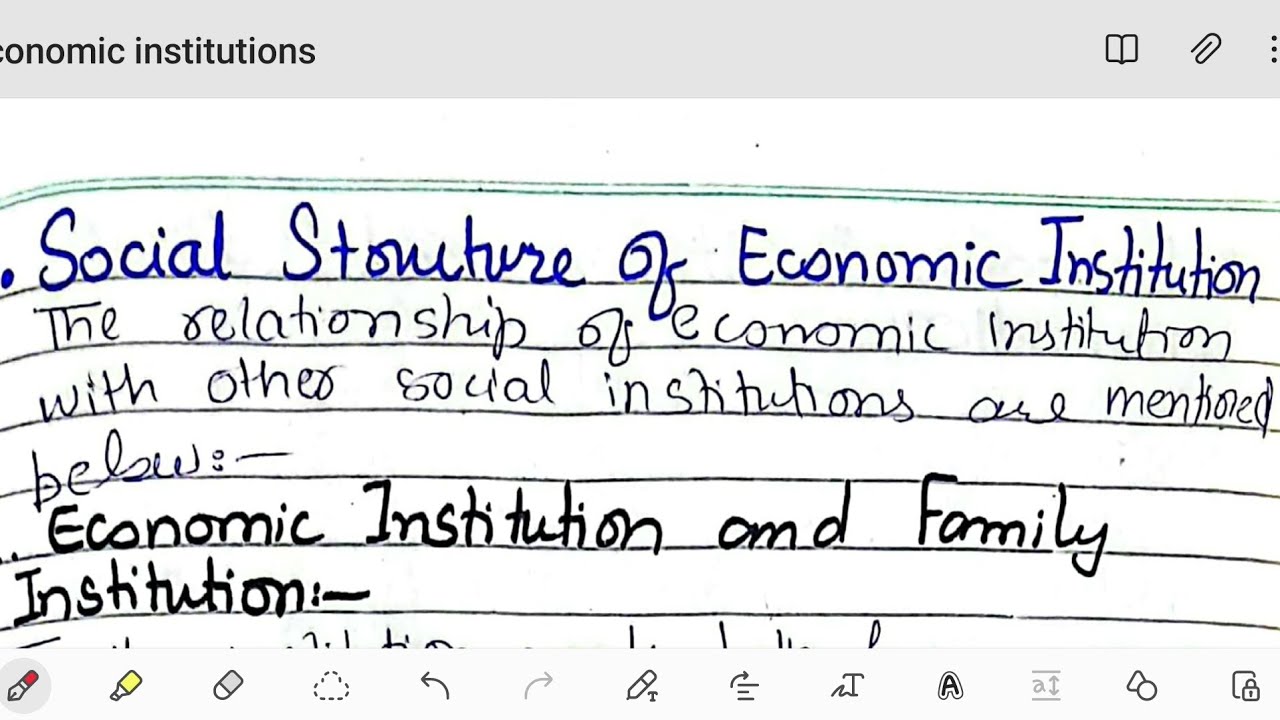 conomic institutions
. Social Structure of Economic Institution
The relationship of economic institution
with other social institutions are mentioned
below:—
Economic Institution and Family
Institution:—